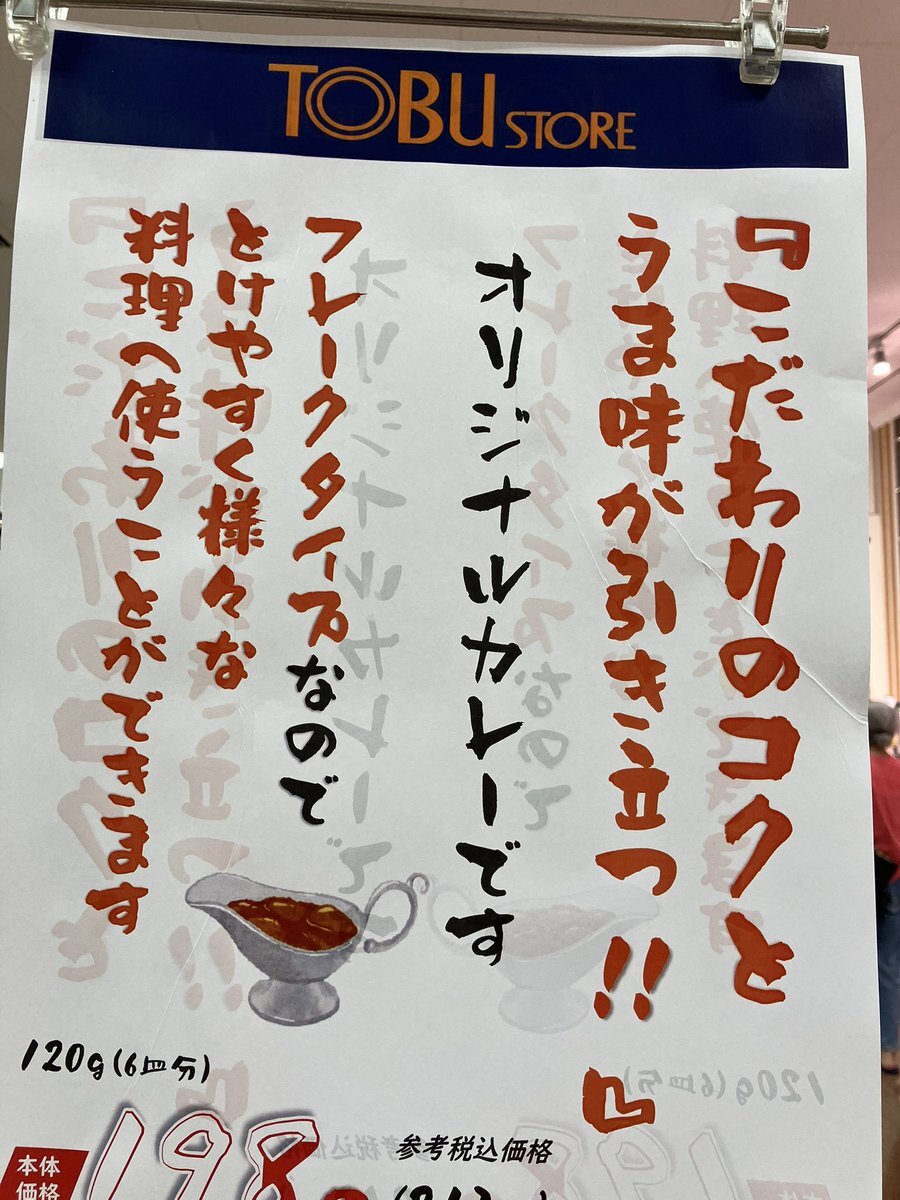 TOBU STORE
『こだわりのコクと
うま味が引き立つ!!』
オリジナルカレーです
フレークタイプなので
とけやすく様々な
料理へ使うことができます
120g(6皿分)
本体
価格
198
参考税込価格